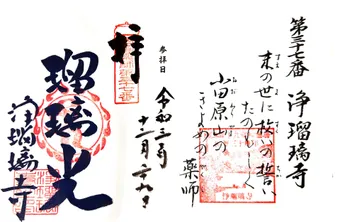 第三十七番 浄瑠璃寺
末の世に救いの誓い
たのもしく
小田原山の
きよめの薬師
参拝日
令和三年
十二月二九日
拝
瑠璃光
浄瑠璃寺